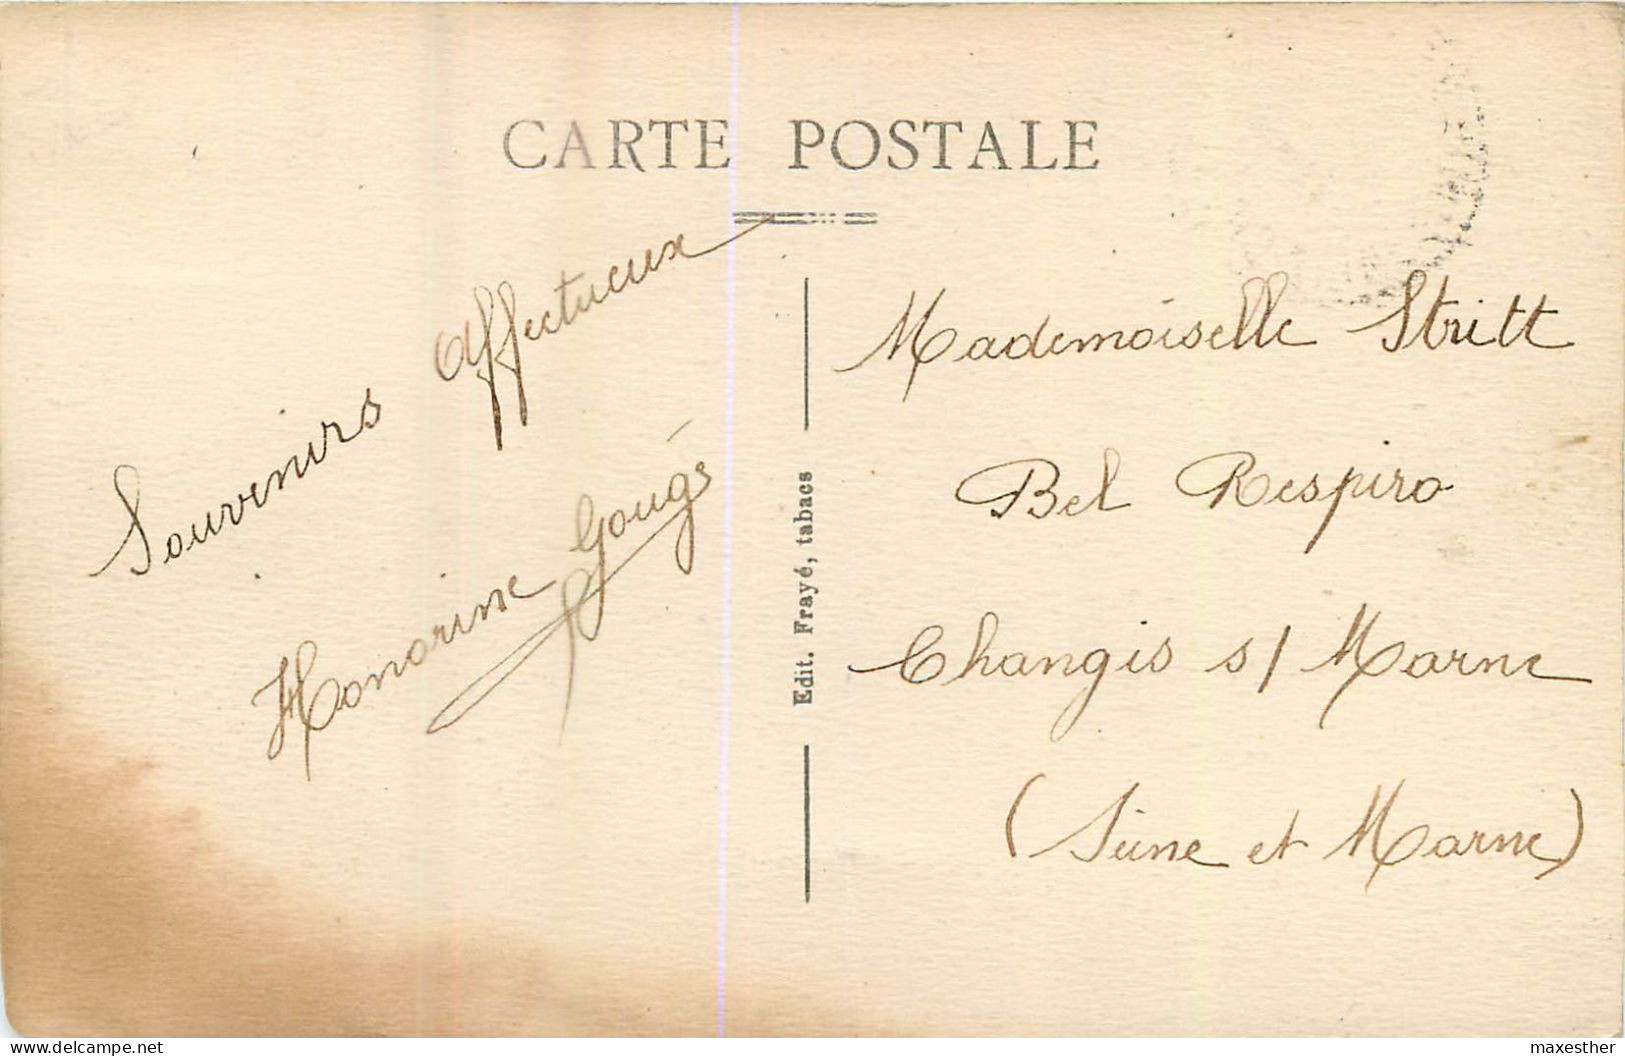 CARTE POSTALE
Souvenirs affectueux
Honorine Gougé
Edit. Frayé, tabacs
Mademoiselle Stritt
Bel Respiro
Changis s/ Marne
(Seine et Marne)
www.delcampe.net
maxesther